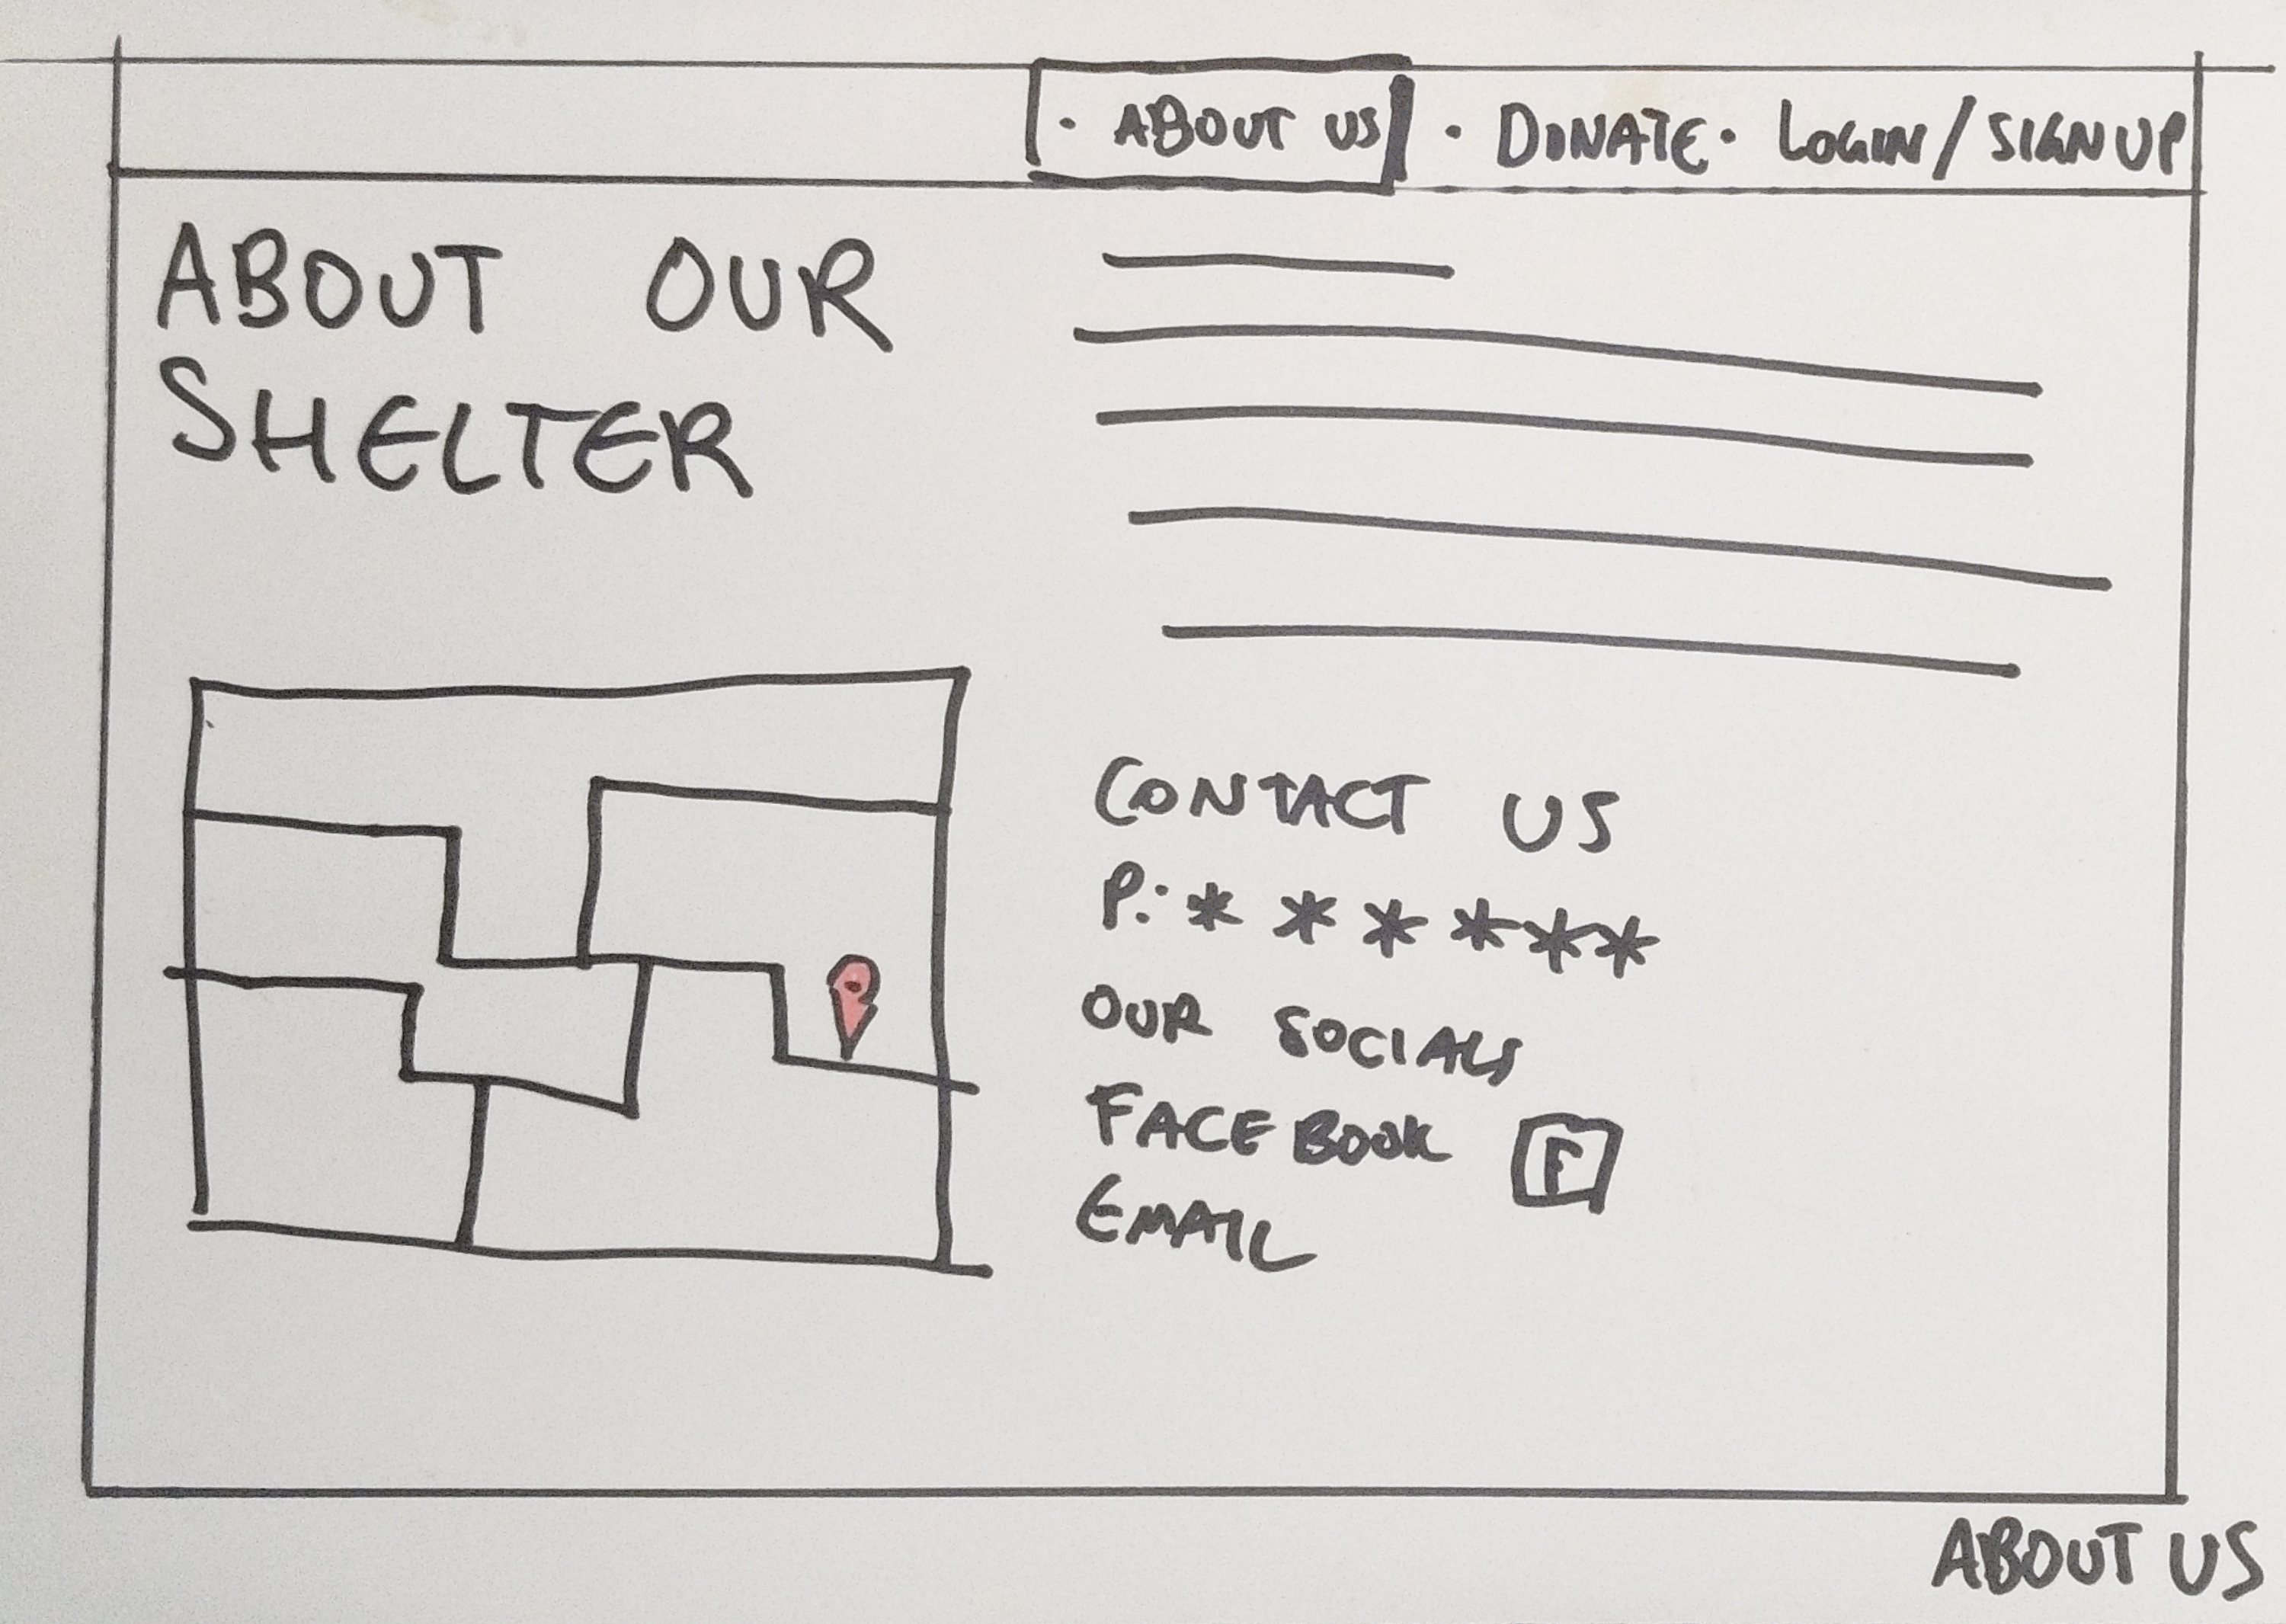 · ABOUT US · DONATE · LOGIN / SIGN UP
ABOUT OUR
SHELTER
CONTACT US
P: * * * * * *
OUR SOCIALS
FACEBOOK F
EMAIL
ABOUT US